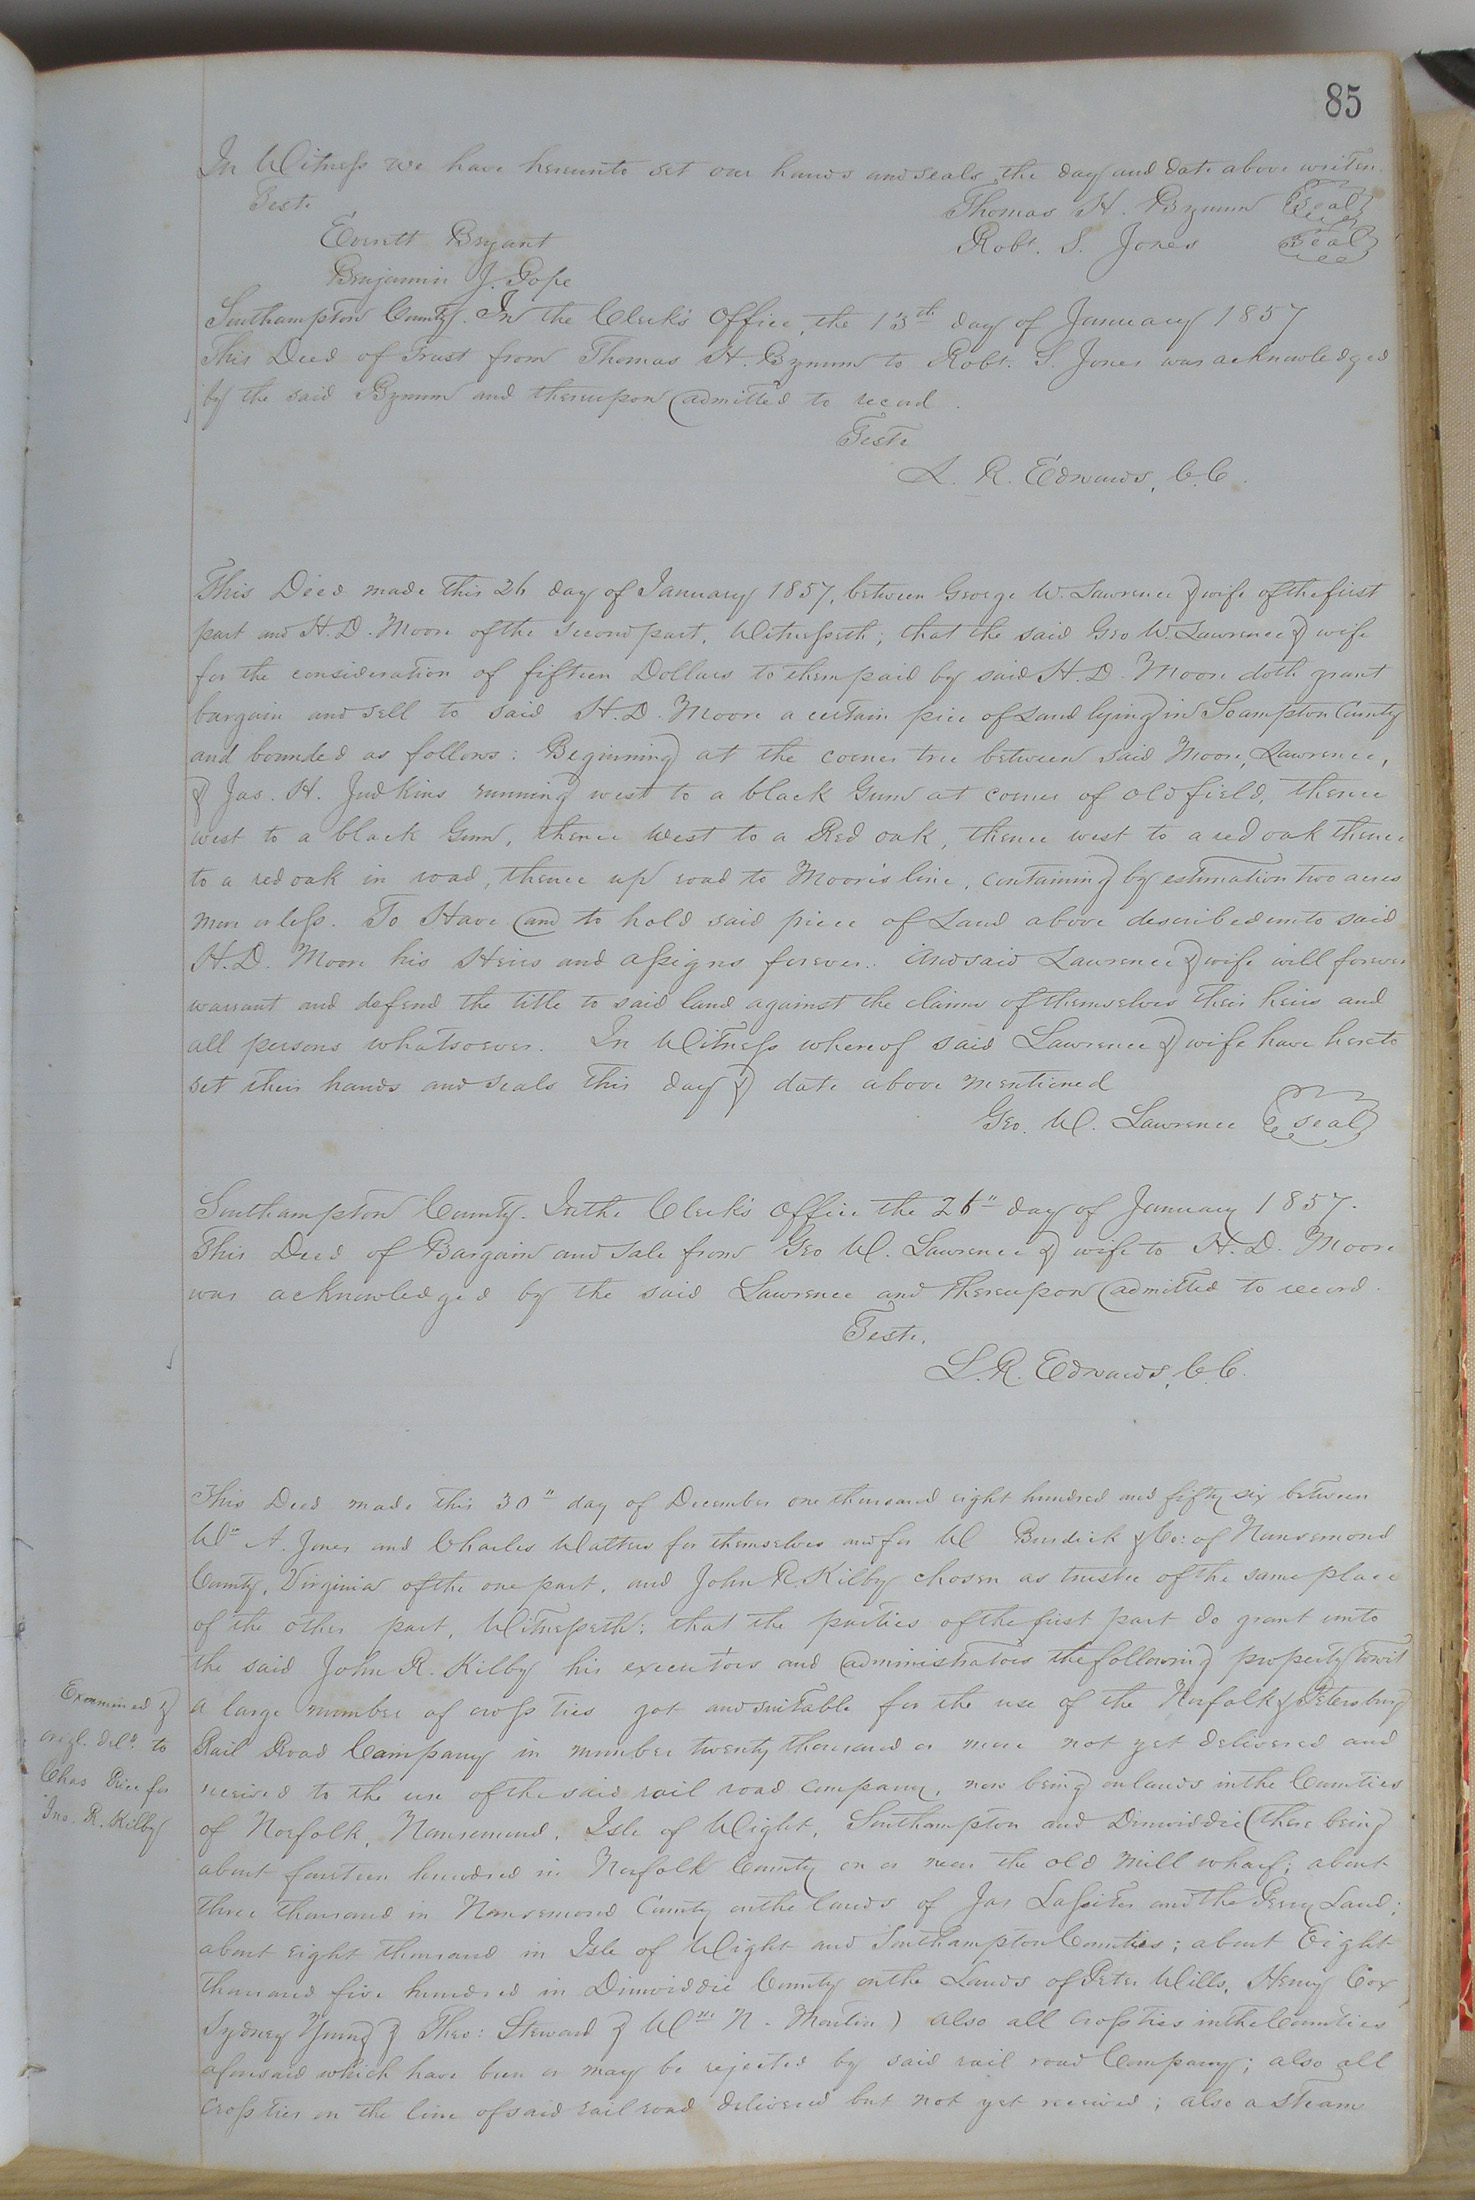 85
In Witness we have hereunto set our hands and seals the day and date above written.
Teste Thomas H. Bynum Seal
Everett Bryant Robt. S. Jones Seal
Benjamin J. Pope
Southampton County. In the Clerk's Office, the 13th day of January 1857
This Deed of Trust from Thomas H. Bynum to Robt. S. Jones was acknowledged
by the said Bynum and thereupon admitted to record.
Teste
L. R. Edwards, C.C.
This Deed made this 26 day of January 1857, between George W. Lawrence & wife of the first
part and H. D. Moore of the second part, Witnesseth; that the said Geo W. Lawrence & wife
for the consideration of fifteen Dollars to them paid by said H. D. Moore doth grant
bargain and sell to said H. D. Moore a certain piece of Land lying in Soampton County
and bounded as follows: Beginning at the corner tree between said Moore, Lawrence,
& Jas. H. Judkins running west to a black Gum at corner of old field, thence
west to a black Gum, thence West to a Red oak, thence west to a red oak thence
to a red oak in road, thence up road to Moore's line, containing by estimation two acres
more or less. To Have and to hold said piece of Land above described unto said
H. D. Moore his Heirs and assigns forever. And said Lawrence & wife will forever
warrant and defend the title to said land against the claims of themselves their heirs and
all persons whatsoever. In Witness whereof said Lawrence & wife have hereto
set their hands and seals this day & date above mentioned
Geo. W. Lawrence seal
Southampton County. In the Clerk's Office the 26" day of January 1857.
This Deed of Bargain and Sale from Geo W. Lawrence & wife to H. D. Moore
was acknowledged by the said Lawrence and thereupon admitted to record.
Teste.
L. R. Edwards, C.C.
This Deed made this 30" day of December one thousand eight hundred and fifty six between
Wm A. Jones and Charles Watters for themselves and for W Burdick & Co: of Nansemond
County, Virginia of the one part, and John R. Kilby chosen as trustee of the same place
of the other part, Witnesseth: that the parties of the first part do grant unto
the said John R. Kilby his executors and administrators the following property towit
a large number of cross ties got and suitable for the use of the Norfolk & Petersburg
Rail Road Company in number twenty thousand or more not yet delivered and
received to the use of the said rail road company, now being on lands in the Counties
of Norfolk, Nansemond, Isle of Wight, Southampton and Dinwiddie (there being
about fourteen hundred in Norfolk County on or near the old mill wharf; about
three thousand in Nansemond County on the lands of Jas Lassiter and the Perry Land;
about eight thousand in Isle of Wight and Southampton Counties; about Eight
thousand five hundred in Dinwiddie County on the Lands of Peter Wills, Henry Cox
Sydney Young & Theo: Steward & Wm N. Martin) also all cross ties in the Counties
aforesaid which have been or may be rejected by said rail road Company; also all
cross ties on the line of said rail road delivered but not yet received; also a steam
Examined &
origl. deld. to
Chas Price for
Jno. R. Kilby